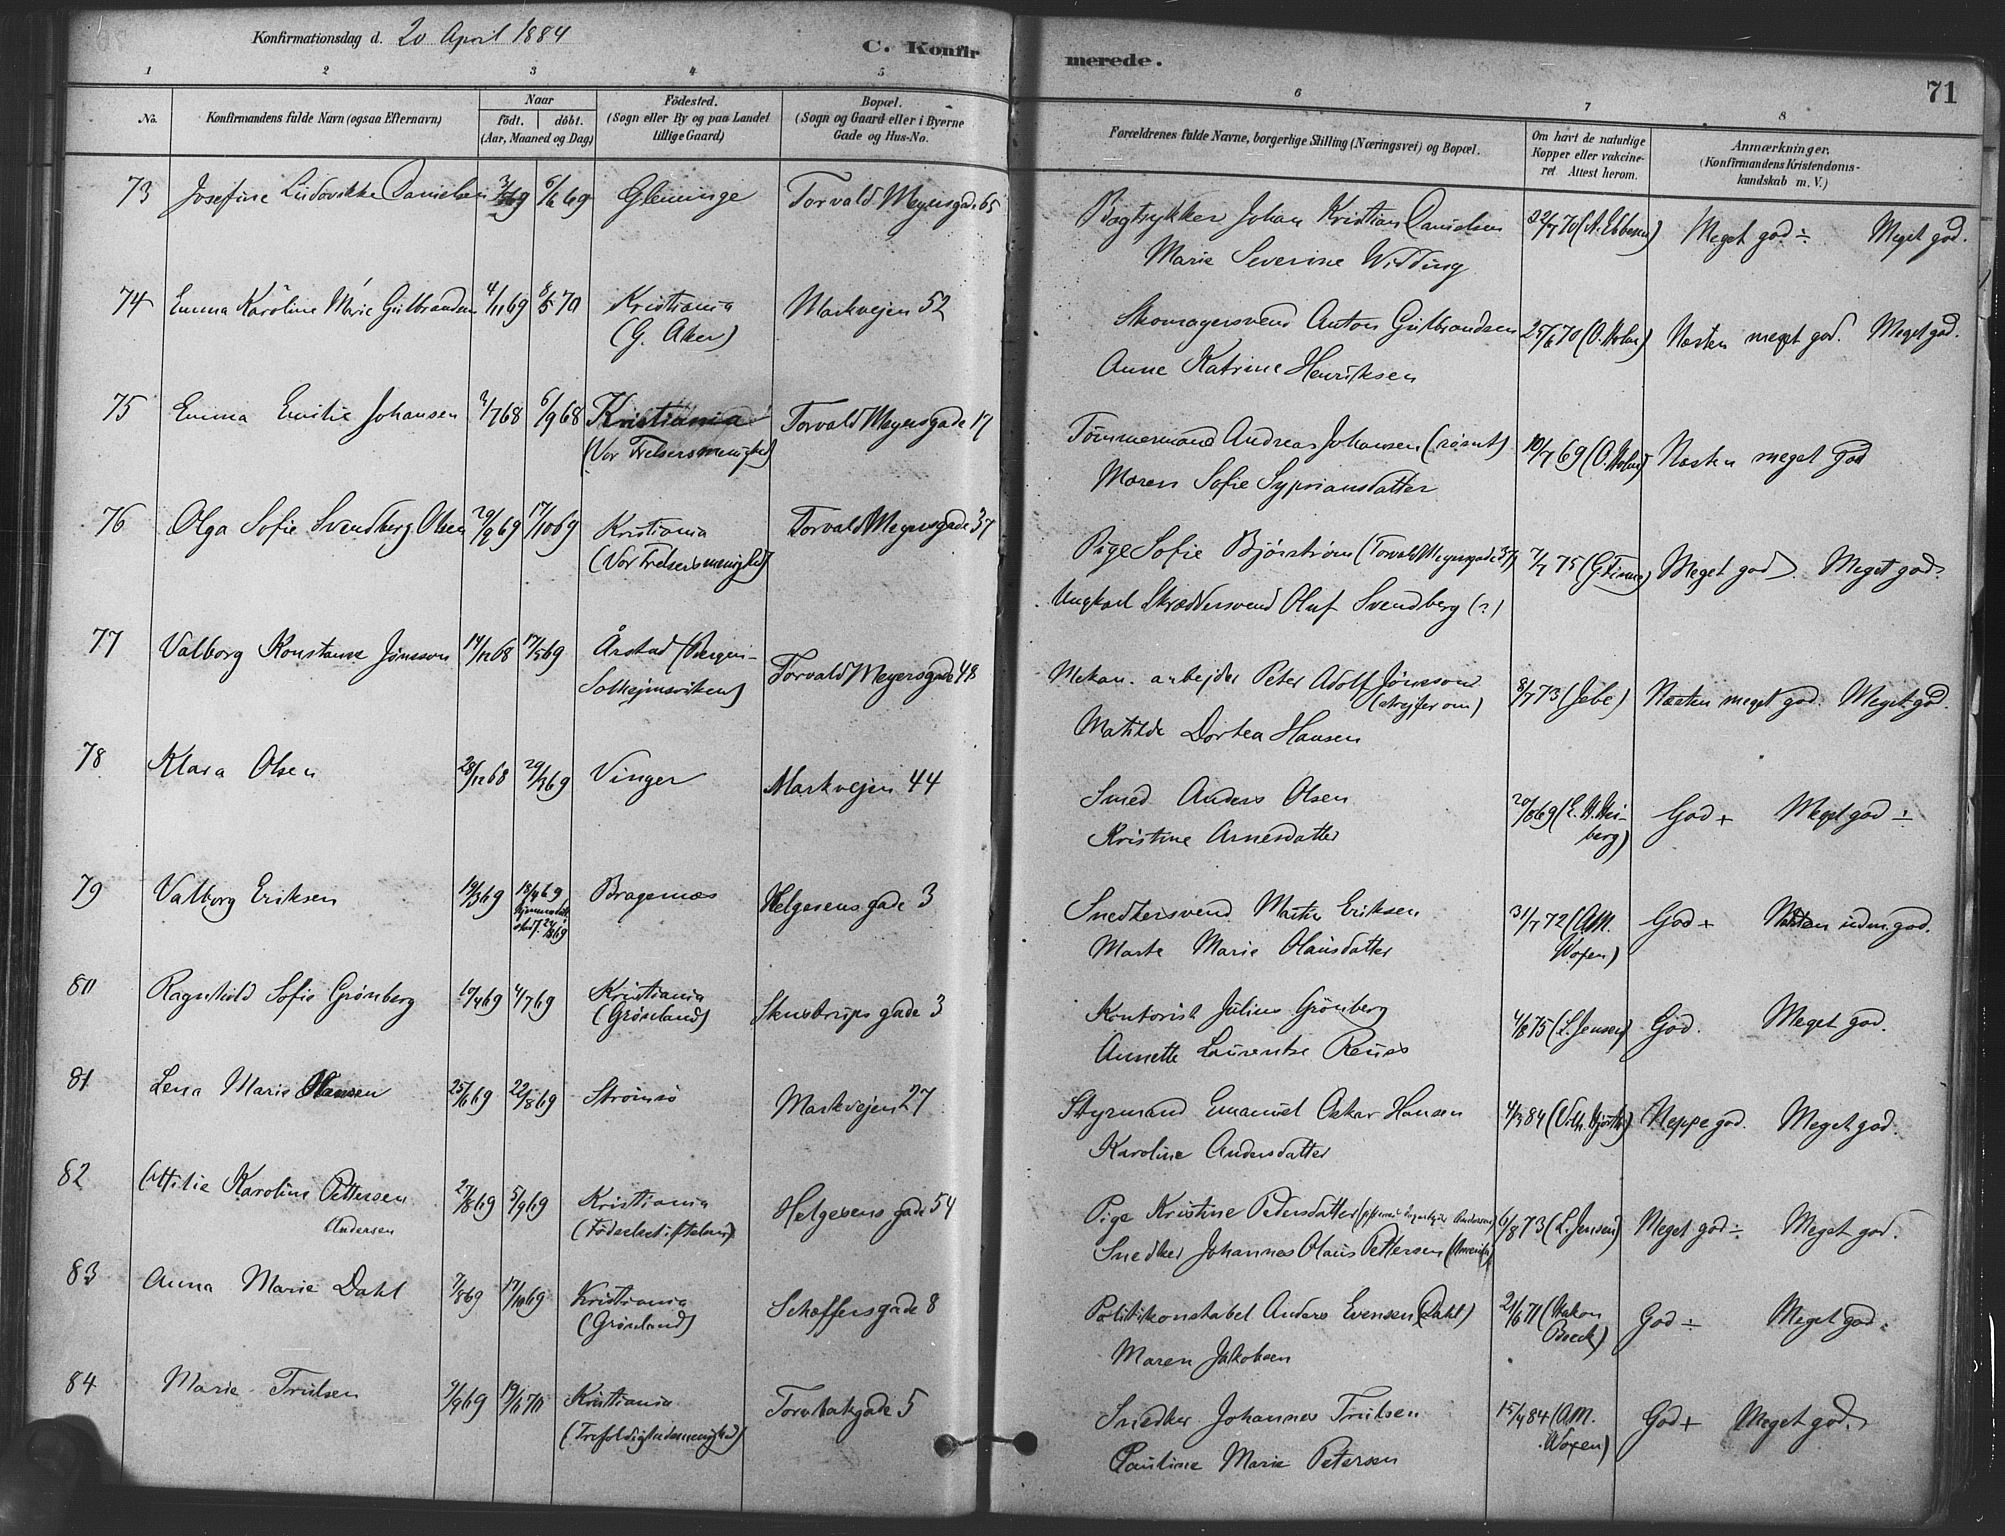 Konfirmationsdag d. 20 April 1884
C. Konfirmerede.
71
1 2 3 4 5 6 7 8
No.
Konfirmandens fulde Navn (ogsaa Efternavn)
Naar
födt. döbt.
(Aar, Maaned og Dag)
Födested.
(Sogn eller By og paa Landet
tillige Gaard)
Bopæl.
(Sogn og Gaard eller i Byerne
Gade og Hus-No.
Forældrenes fulde Navne, borgerlige Stilling (Næringsvei) og Bopæl.
Om havt de naturlige
Kopper eller vakcine-
ret Attest herom.
Anmærkninger.
(Konfirmandens Kristendoms-
kundskab m. V.)
73 Josefine Ludovikke Danielsen 6/6 69 Glemminge Torvald Meyersgade 65 Bogtrykker Johan Kristian Danielsen 22/7 70 (A. Ebbesen) Meget god ÷ Meget god.
Marie Severine Widding
74 Emma Karoline Marie Gulbrandsen 4/11 69 8/5 70 Kristiania Markvejen 52 Skomagersvend Anton Gulbrandsen 25/6 70 (O. Holm) Næsten meget god. Meget god.
(G. Aker) Anne Katrine Henriksen
75 Emma Emilie Johansen 2/7 68 6/9 68 Kristiania Torvald Meyersgade 17 Tömmermand Andreas Johansen (rømt) 10/7 69 (O. Holm) Næsten meget god
(Vor Frelsers menighed) Maren Sofie Sypriansdatter
76 Olga Sofie Svendberg Olsen 29/9 69 17/10 69 Kristiania Torvald Meyersgade 37 Pige Sofie Bjørstrøm (Torvald Meyersgade 37) 7/7 75 Meget god. Meget god.
(Vor Frelsers menighed) Ungkarl Skræddersvend Oluf Svendberg (?)
77 Valborg Konstanse Jønsson 14/12 68 17/5 69 Årstad (Bergen- Torvald Meyersgade 48 Mekan. arbejder Peter Adolf Jønsson 8/7 73 (Jebe) Næsten meget god. Meget god.
Solhejmsviken) (strejfer om)
Matilde Dortea Hansen
78 Klara Olsen 28/12 68 29/3 69 Vinger Markvejen 44 Smed Anders Olsen 20/8 69 God + Meget god ÷
Kristine Arnesdatter
79 Valborg Eriksen 19/3 69 18/4 69 Bragernæs Helgesens gade 3 Snedkersvend Martin Eriksen 31/7 72 (A.M. God + Næsten udm. god.
Marte Marie Olausdatter Woxen)
80 Ragnhild Sofie Grønberg 10/4 69 4/7 69 Kristiania Skustrups gade 3 Kontorist Julius Grönberg 4/8 75 (L. Jensen) God. Meget god.
(Grønland) Annette Laurentse Reuss
81 Lena Marie Hansen 25/6 69 22/8 69 Strömsö Markvejen 27 Styrmand Emanuel Oskar Hansen 4/3 84 Neppe god. Meget god.
Karoline Andersdatter
82 Ottilie Karoline Pettersen 27/8 69 5/9 69 Kristiania Helgesens gade 54 Pige Kristine Pedersdatter 6/8 73 (L. Jensen) Meget god ÷ Meget god.
Andersen (Födselsstiftelsen) Snedker Johannes Olaus Pettersen (Amerika)
83 Anna Marie Dahl 7/8 69 17/10 69 Kristiania Schæffersgade 8 Politikonstabel Anders Evensen (Dahl) 21/6 71 (Hakon God ÷ Meget god.
(Grönland) Maren Jakobsen Boeck)
84 Marie Trulsen 9/9 69 19/6 70 Kristiania Torvbakgade 5 Snedker Johannes Trulsen 15/4 84 (A.M. God + Meget god.
(Trefoldighedsmenighed) Pauline Marie Petersen Woxen)